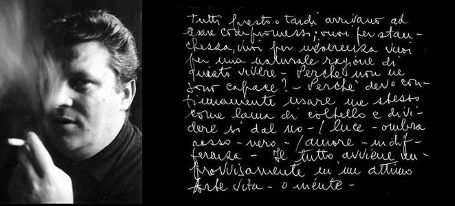 Tutti presto o tardi arrivano ad
aver compromessi; vuoi per stan-
chezza, vuoi per incoerenza vuoi
per una naturale ragione di
quieto vivere - Perché non ne
sono capace? - Perché devo con-
tinuamente usare me stesso
come lama di coltello e divi-
dere sì dal no - / luce - ombra
rosso - nero - / amore - indif-
ferenza - Il tutto avviene im-
provvisamente in un attimo
forte vita - o niente -